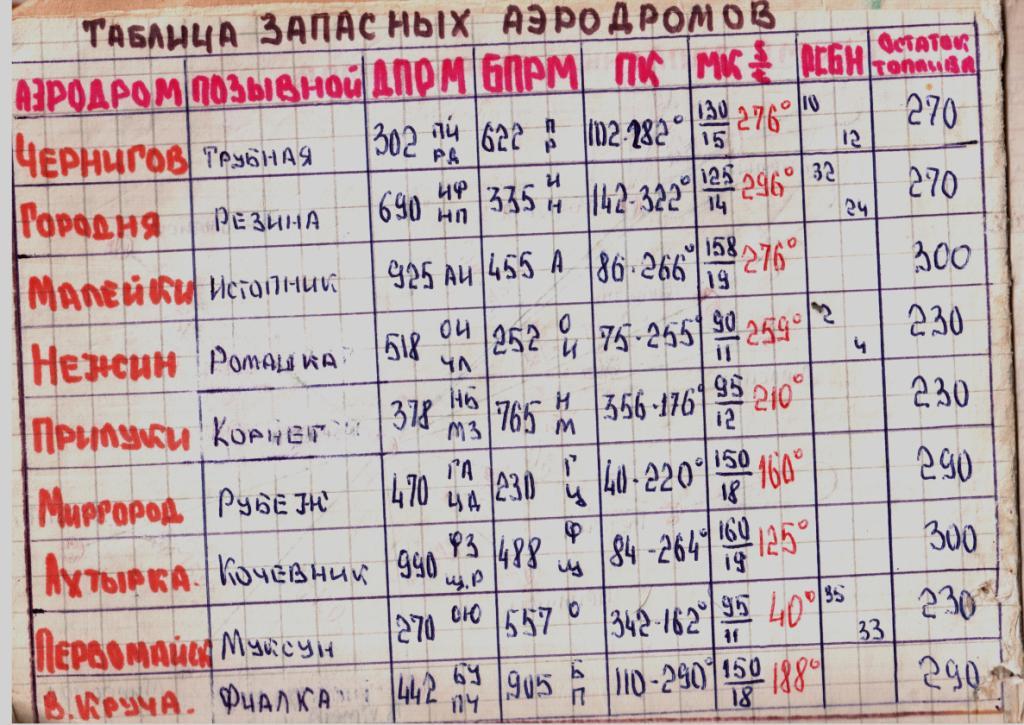 ТАБЛИЦА ЗАПАСНЫХ АЭРОДРОМОВ
АЭРОДРОМ ПОЗЫВНОЙ ДПРМ БПРМ ПК МК S/t РСБН ОСТАТОК ТОПЛИВА
ЧЕРНИГОВ ТРУБНАЯ 302 ПЙ РД 622 П Р 102-282° 130/15 276° 10 12 270
ГОРОДНЯ РЕЗИНА 690 ИФ НП 335 И Н 142-322° 125/14 296° 32 24 270
МАЛЕЙКИ ИСТОПНИК 925 АИ 455 А 86-266° 158/19 276° 300
НЕЖСИН РОМАШКА 518 ОЙ ЧЛ 252 О И 75-255° 90/11 259° 2 4 230
ПРИЛУКИ КОРНЕТ 378 НБ МЗ 765 Н М 356-176° 95/12 210° 230
МИРГОРОД РУБЕЖ 470 ГА ЦД 230 Г Ц 40-220° 150/18 160° 290
АХТЫРКА. КОЧЕВНИК 990 ФЗ Щ.Р 488 Ф Щ 84-264° 160/19 125° 300
ПЕРВОМАЙСК МУКСУН 270 ОЮ 557 О 342-162° 95/11 40° 35 33 230
В. КРУЧА. ФИАЛКА 442 БУ ПЧ 905 Б П 110-290° 150/18 188° 290